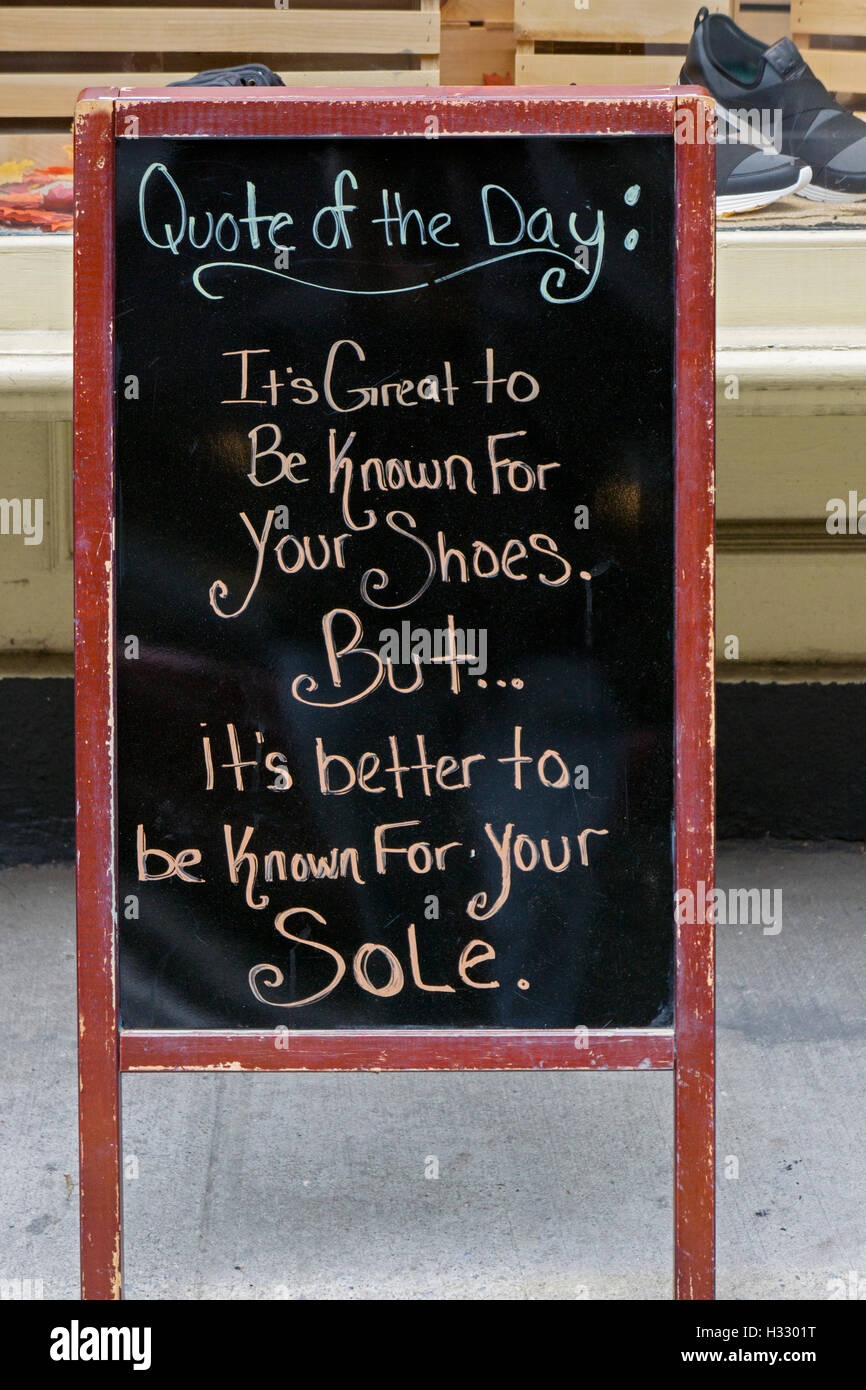 Quote of the Day:
It's Great to
Be Known For
Your Shoes.
But...
it's better to
be known For your
Sole.
alamy
Image ID: H3301T
www.alamy.com